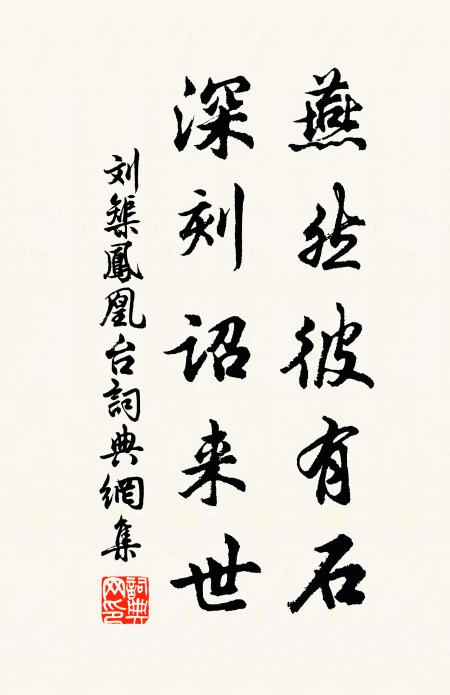 燕然彼有石
深刻詔来世
刘槩鳳凰台詞典網集
詞典网